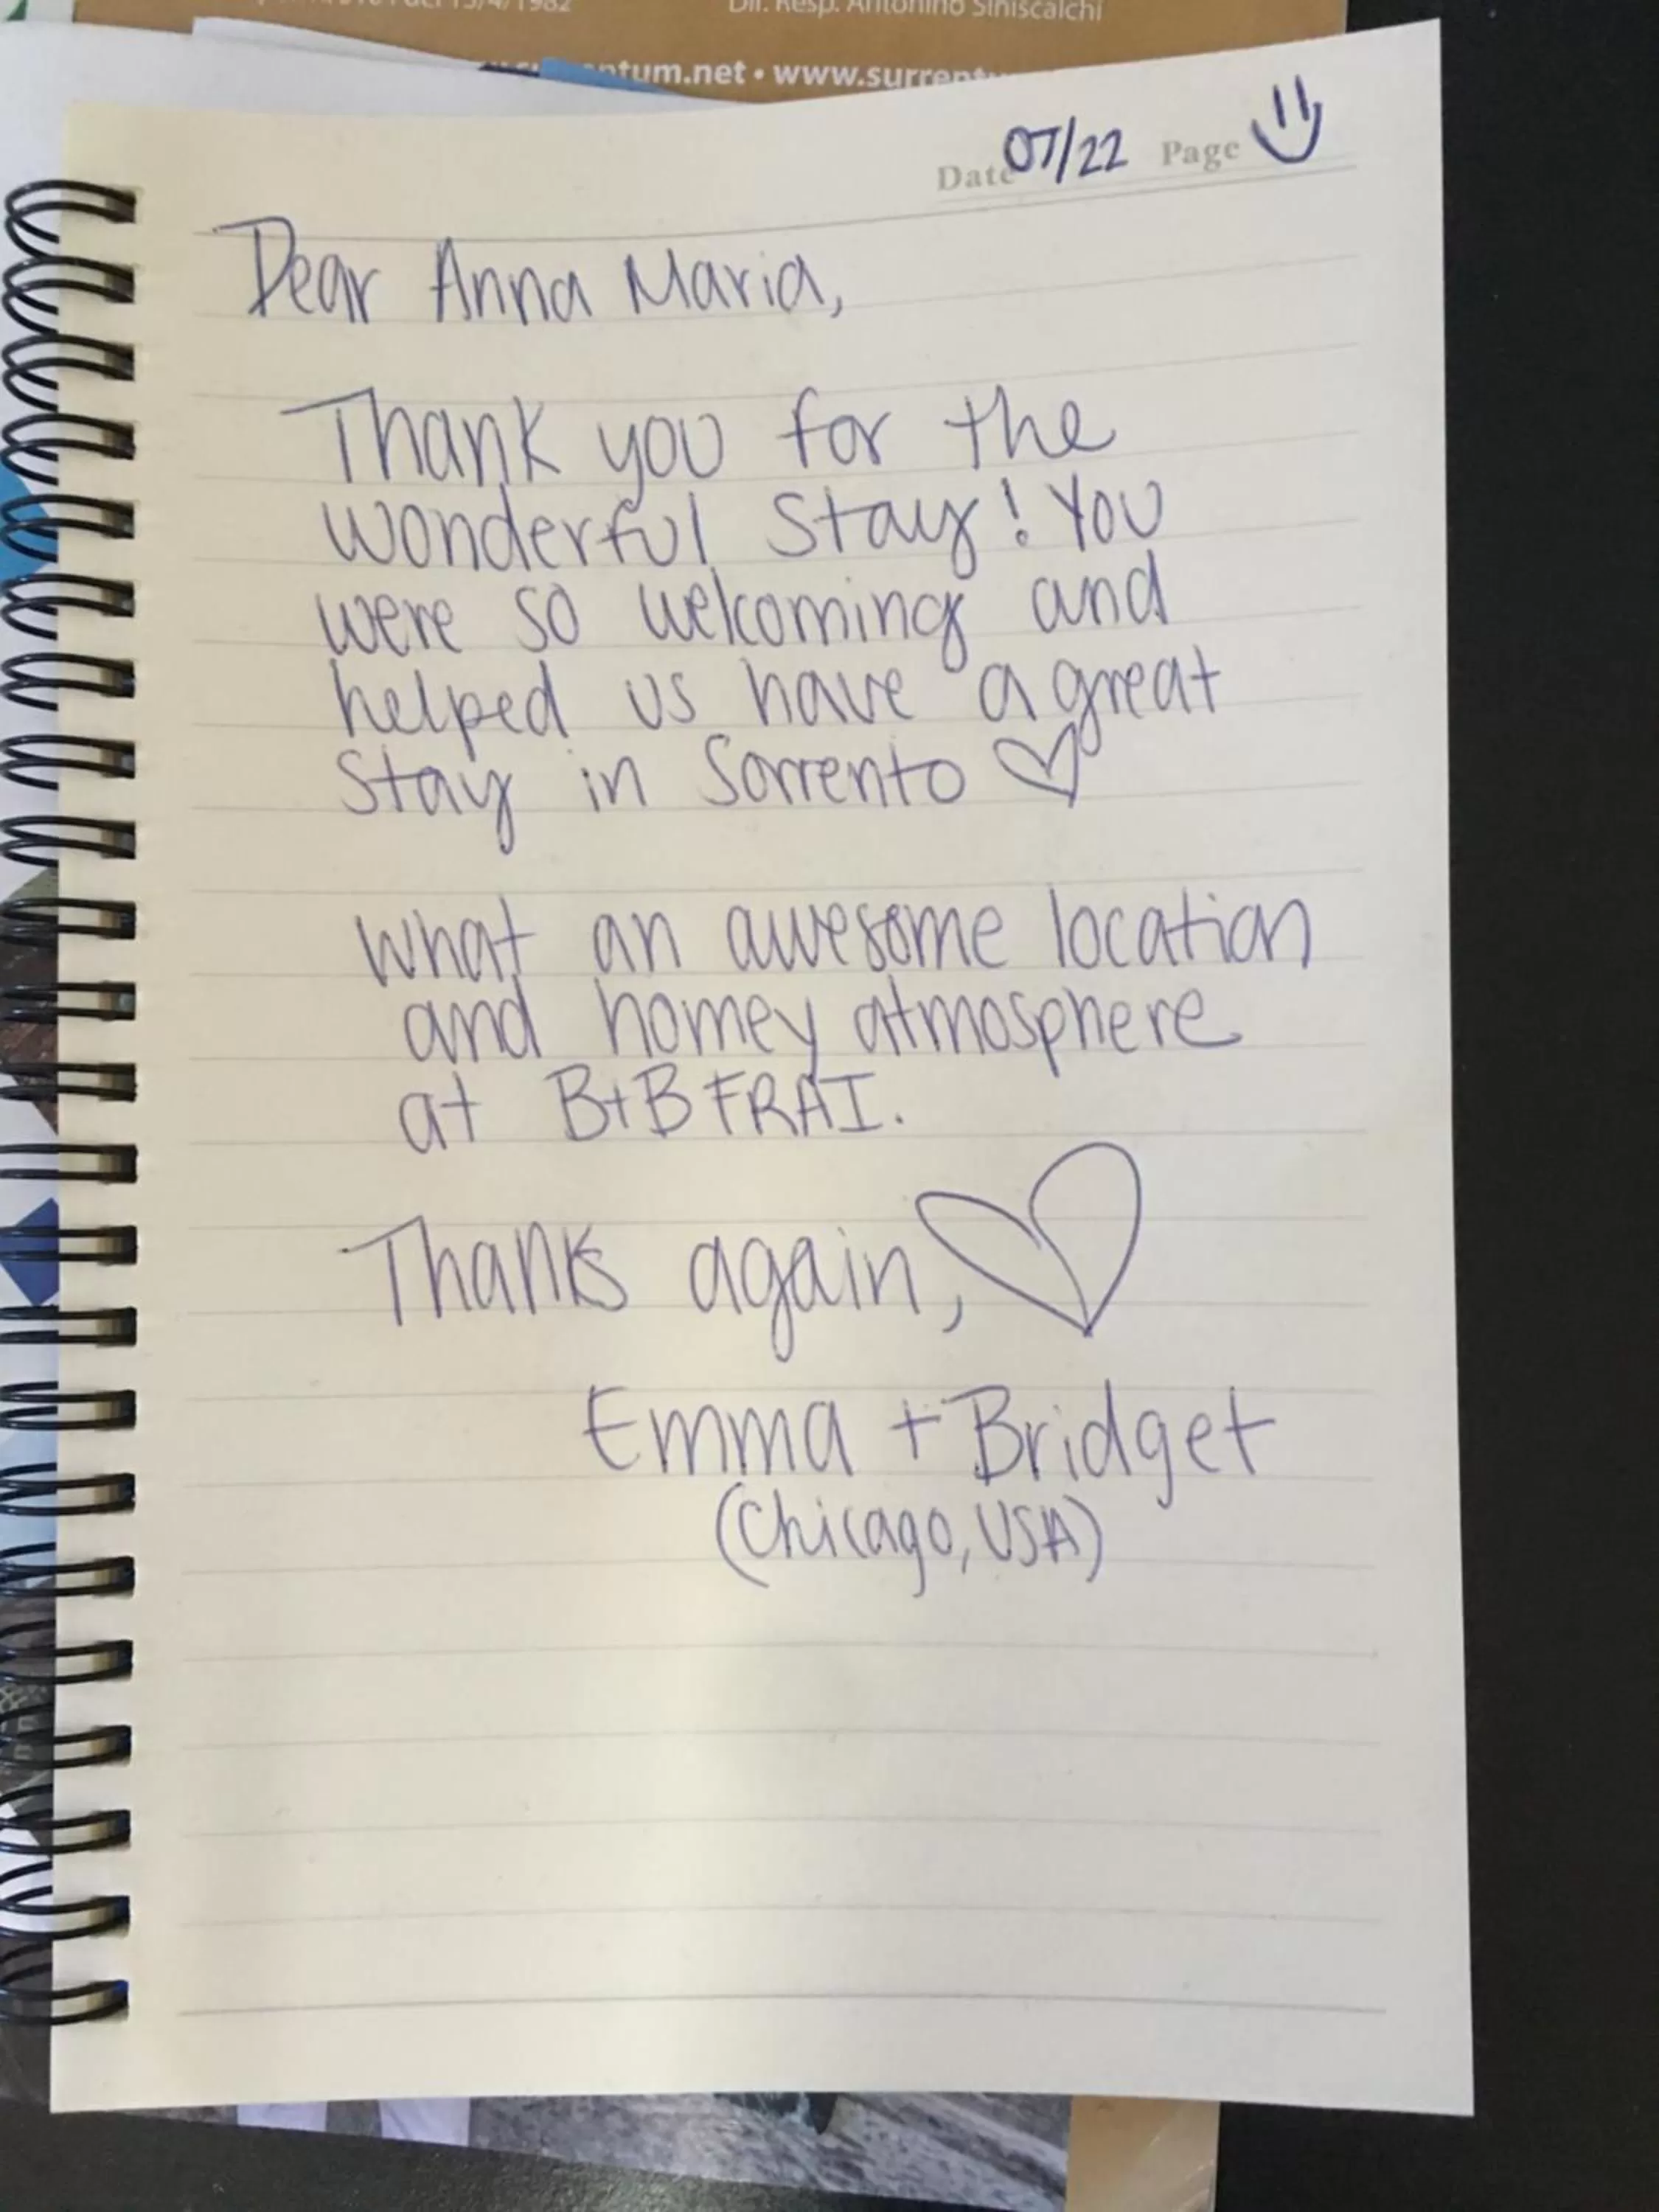 Dir. Resp. Antonino Siniscalchi
ntum.net • www.surrent
Date 07/22 Page
Dear Anna Maria,
Thank you for the
wonderful stay! You
were so welcoming and
helped us have a great
stay in Sorrento ♡
what an awesome location
and homey atmosphere
at B+B FRAI.
Thanks again, ♡
Emma + Bridget
(Chicago, USA)